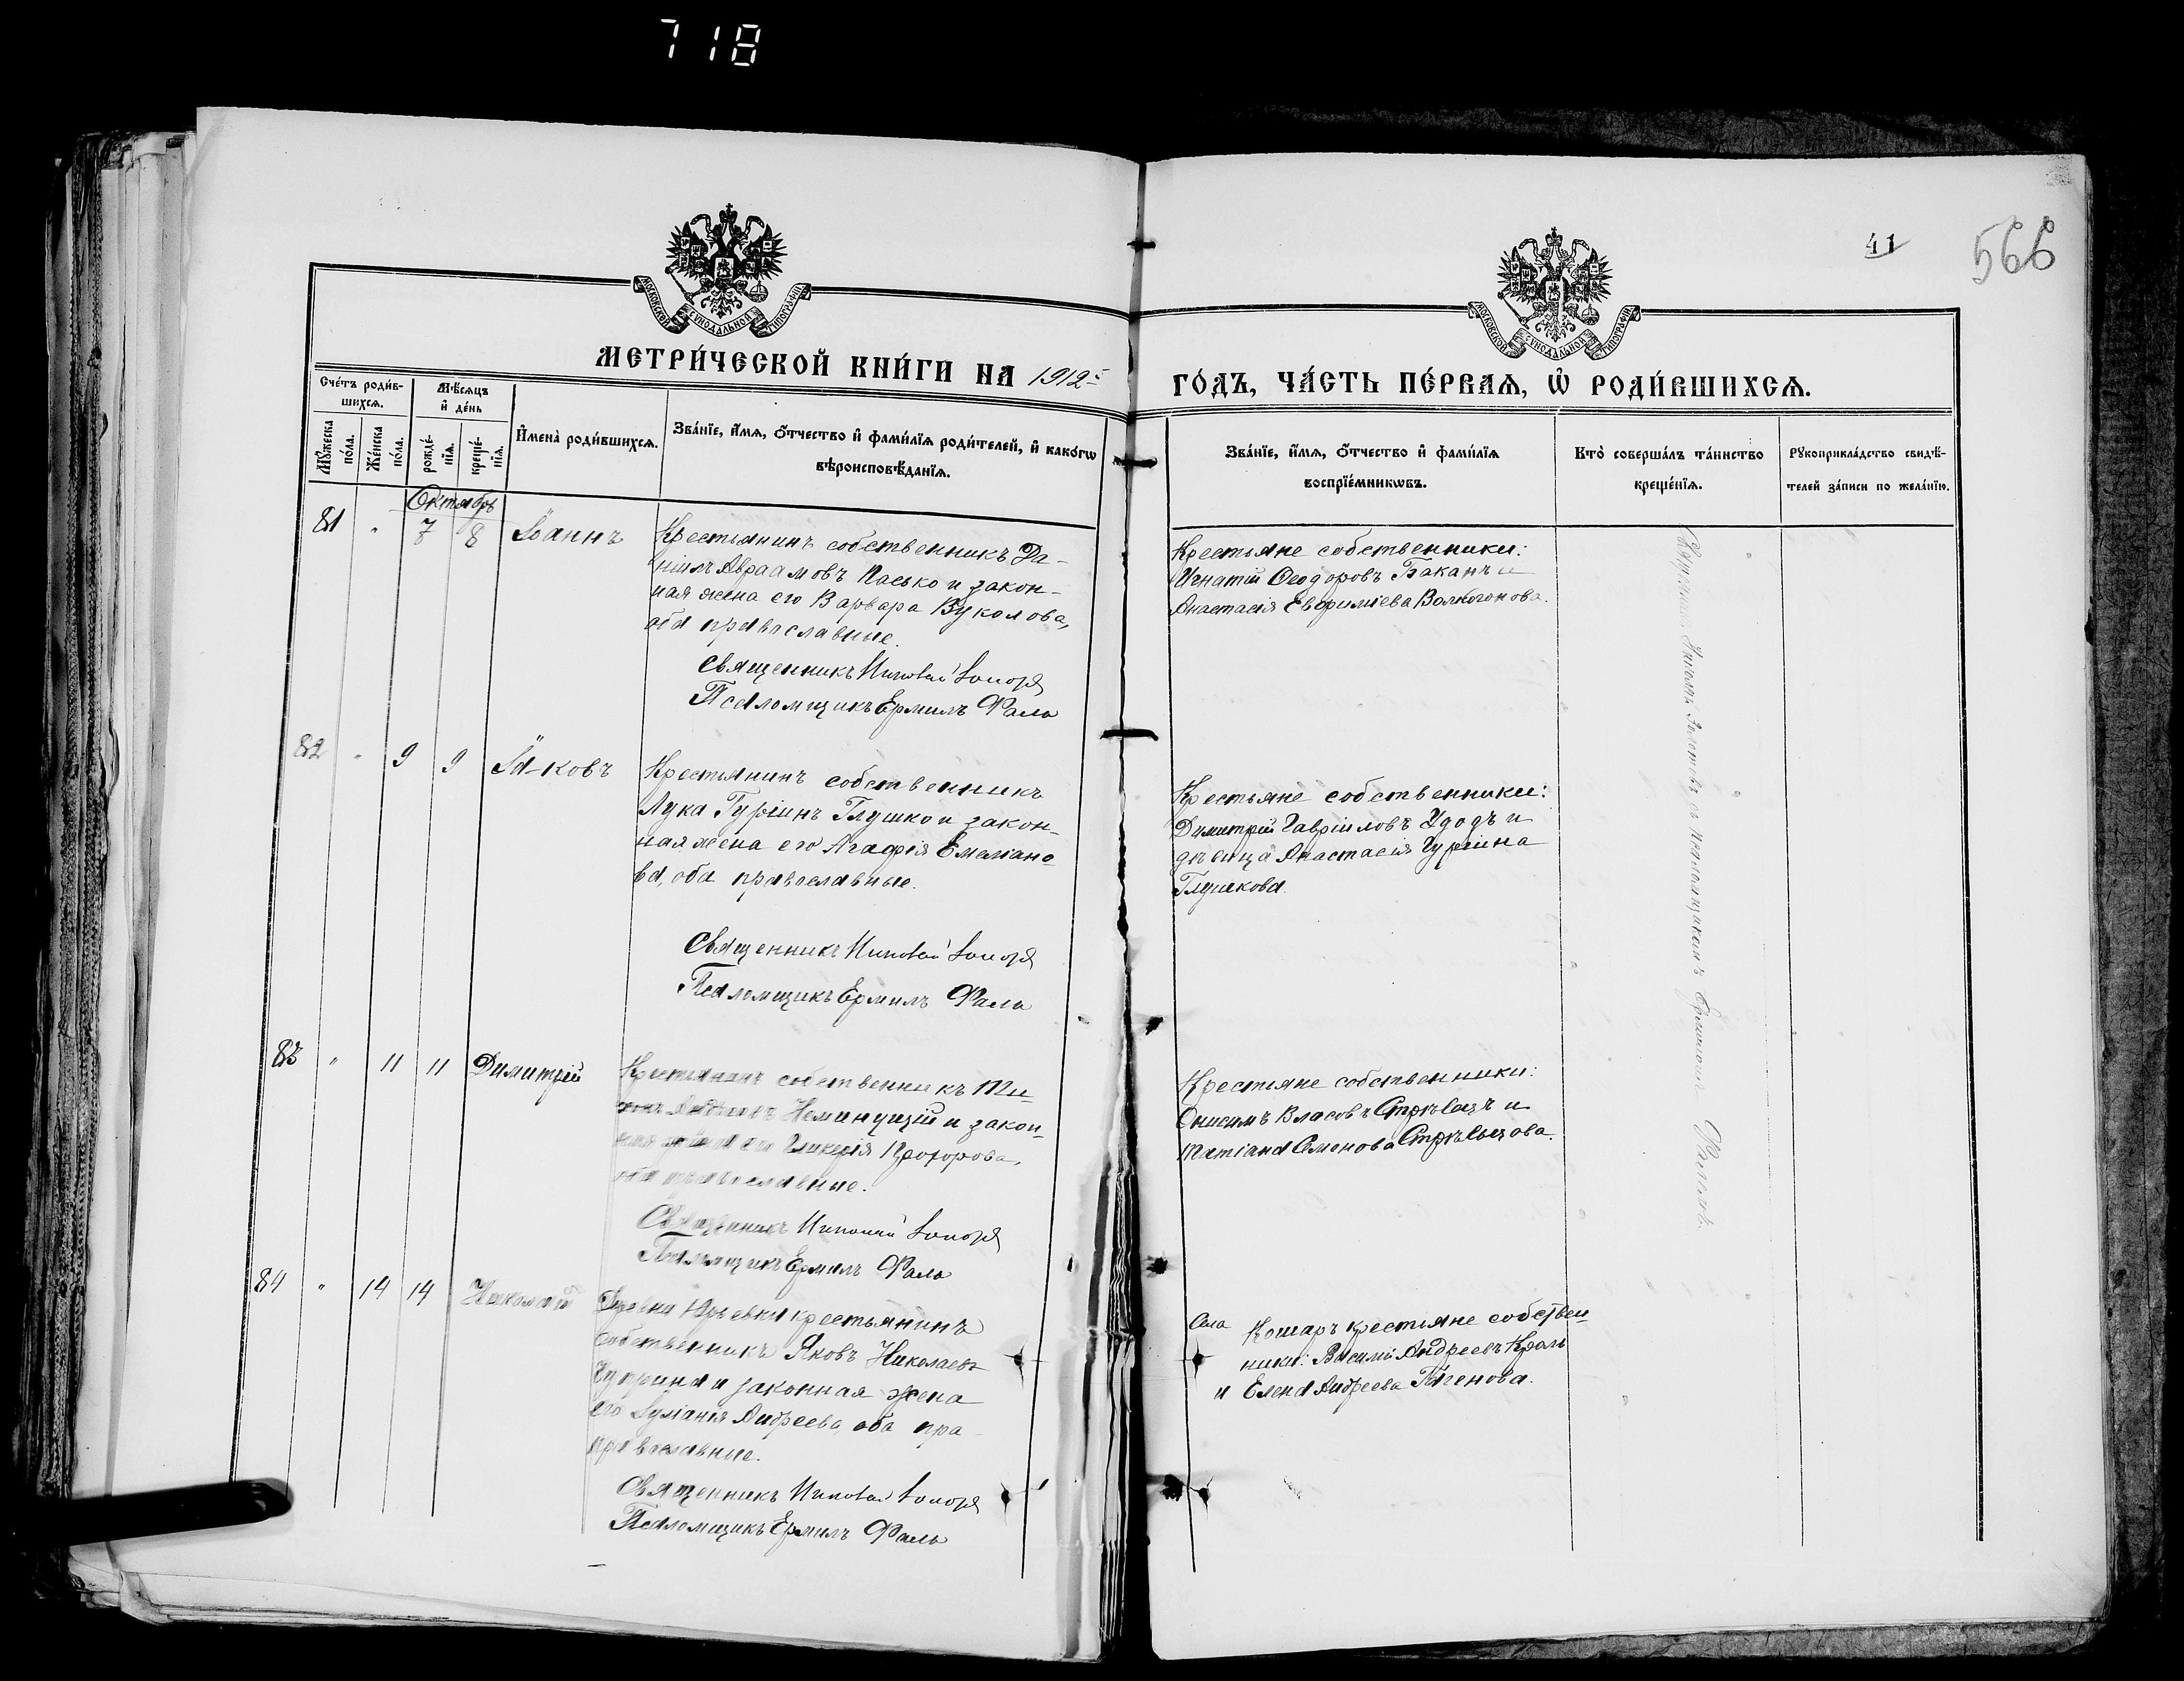 718
41
566
МОСКОВСКОЙ СѴНОДАЛЬНОЙ ТИПОГРАФІИ
МОСКОВСКОЙ СѴНОДАЛЬНОЙ ТИПОГРАФІИ
МЕТРИ́ЧЕСКОЙ КНИ́ГИ НА 1912
ГО́ДЪ, ЧА́СТЬ ПЕ́РВАѦ, Ѡ҆ РОДИ́ВШИХСѦ.
Сче́тъ роди́в-
шихсѧ.
Мꙋ́жеска
по́ла.
Же́нска
по́ла.
Мѣ́сѧцъ
и҆ де́нь
рожде́-
нїѧ.
креще́-
нїѧ.
И҆мена̀ роди́вшихсѧ.
Зва́нїе, и҆́мѧ, ѻ҆́тчество и҆ фами́лїѧ роди́телей, и҆ како́гѡ
вѣроисповѣ́данїѧ.
Зва́нїе, и҆́мѧ, ѻ҆́тчество и҆ фами́лїѧ
воспрїе́мникѡвъ.
Кто̀ соверша́лъ та́инство
креще́нїѧ.
Рꙋкоприкла́дство свидѣ́-
телей за́писи по жела́нїю.
Октябрь
81 " 7 8 Іоаннъ
Крестьянинъ собственникъ Да-
ніилъ Авраамовъ Пасько и закон-
ная жена его Варвара Вуколова,
оба православные.
Священникъ Николай
Псаломщикъ Ермилъ Фаль
Крестьяне собственники:
Игнатій Ѳеодоровъ Баканъ и
Анастасія Евфиміева Волкогонова.
82 " 9 9 Іаковъ
Крестьянинъ собственникъ
Лука Гуріинъ Глушко и закон-
ная жена его Агафія Емеліано-
ва, оба православные.
Священникъ Николай
Псаломщикъ Ермилъ Фаль
Крестьяне собственники:
Димитрій Гавріиловъ Удодъ и
дѣвица Анастасія Гуріина
Глушкова
83 " 11 11 Димитрій
Крестьянинъ собственникъ Ти-
Неминущій и закон-
ная жена его Гликерія Прохорова,
оба православные.
Священникъ Николай
Псаломщикъ Ермилъ Фаль
Крестьяне собственники:
Онисимъ Власовъ Стрѣлецъ и
Татіана Семенова Стрѣльцова.
84 " 14 14 Николай
Деревни Юрьевки крестьянинъ
собственникъ Яковъ Николаевъ
Чуприна и законная жена
его Іуліанія Андреева, оба пра-
православные.
Священникъ Николай
Псаломщикъ Ермилъ Фаль
Села Кошаръ крестьяне собствен-
ники: Василій Андреевъ Кроль
и Елена Андреева
Священникъ Николай съ Псаломщикомъ Ермиломъ Фалемъ.